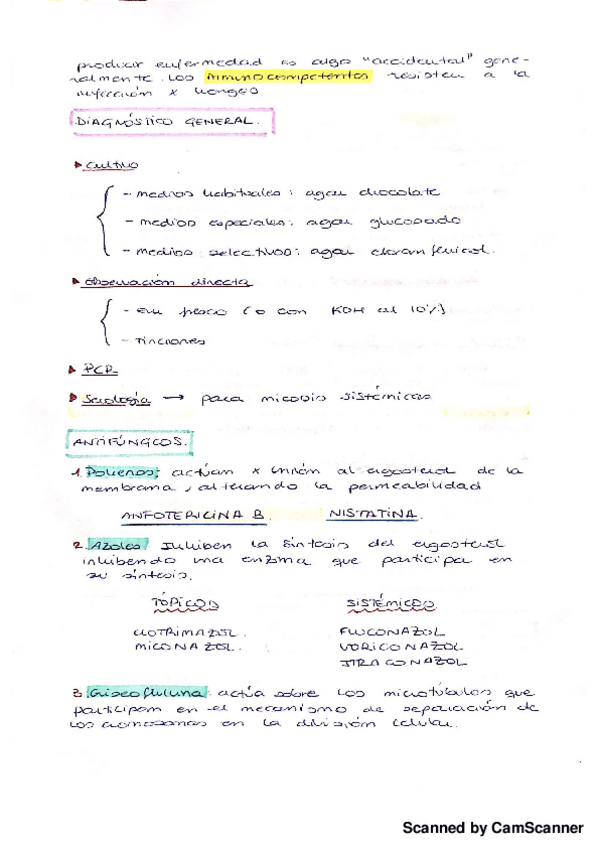 producir enfermedad es algo "accidental" gene-
ralmente. Los inmunocompetentes resisten a la
infección x hongos
DIAGNÓSTICO GENERAL.
▸ Cultivo
- medios habituales: agar chocolate
- medios especiales: agar glucosado
- medios selectivos: agar cloranfenicol.
▸ Observación directa
- En fresco (o con KOH al 10%)
- Tinciones
▸ PCR
▸ Serología → para micosis sistémicas
ANTIFÚNGICOS.
1. Polienos: actúan x unión al ergosterol de la
membrana, alterando la permeabilidad
ANFOTERICINA B. NISTATINA.
2. Azoles Inhiben la síntesis del ergosterol
inhibendo una enzima que participa en
su síntesis.
TÓPICOS SISTÉMICOS
CLOTRIMAZOL. FLUCONAZOL
MICONAZOL. VORICONAZOL
ITRACONAZOL
3. Griseofulvina actúa sobre los microtúbulos que
participan en el mecanismo de separación de
los cromosomas en la división celular.
Scanned by CamScanner